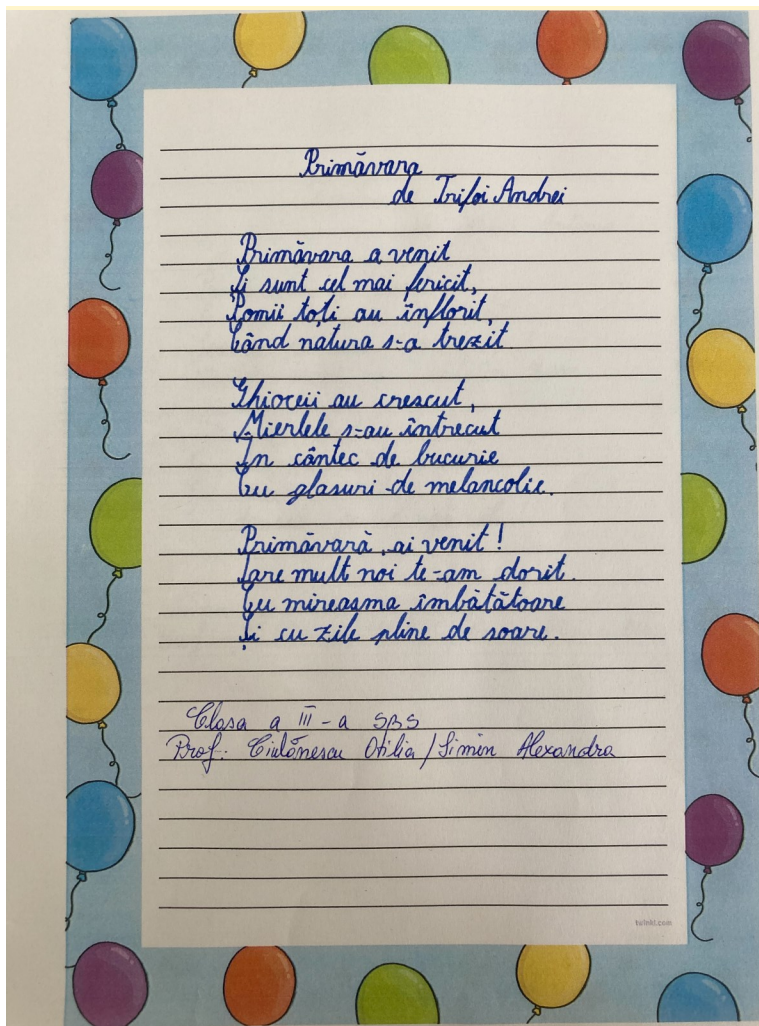 Primăvara
de Trifoi Andrei
Primăvara a venit
Și sunt cel mai fericit,
Pomii toți au înflorit,
Când natura s-a trezit
Ghioceii au crescut,
Mierlele s-au întrecut
În cântec de bucurie
Cu glasuri de melancolie.
Primăvară, ai venit!
Tare mult noi te-am dorit.
Cu mireasma îmbătătoare
Și cu zile pline de soare.
Clasa a III-a SBS
Prof: Otilia / Simin Alexandra
twinkl.com